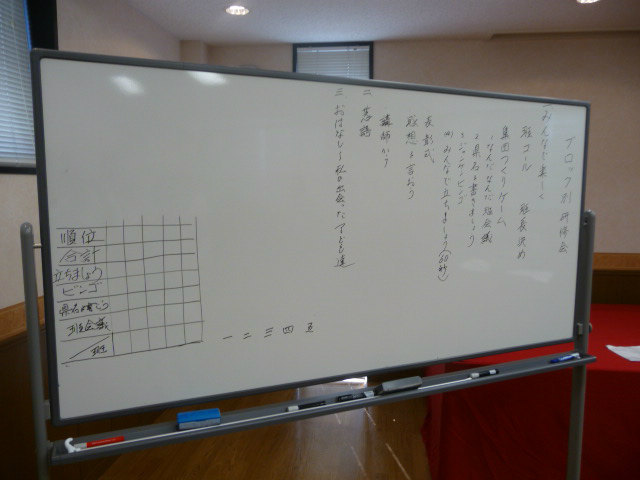 ブロック別研修会
一 みんなで楽しく
班コール 班長決め
集団つくりゲーム
1 なんだなんだ班会議
2 県名を書きましょう
3 ジャンケンビンゴ
(4) みんなで立ちましょう(60秒)
表彰式
感想を言おう
講師から
二 落語
三 おはなし～私が出会った子ども達
一 二 三 四 五
順位
合計
立ちましょう
ビンゴ
県名を書こう
班会議
班